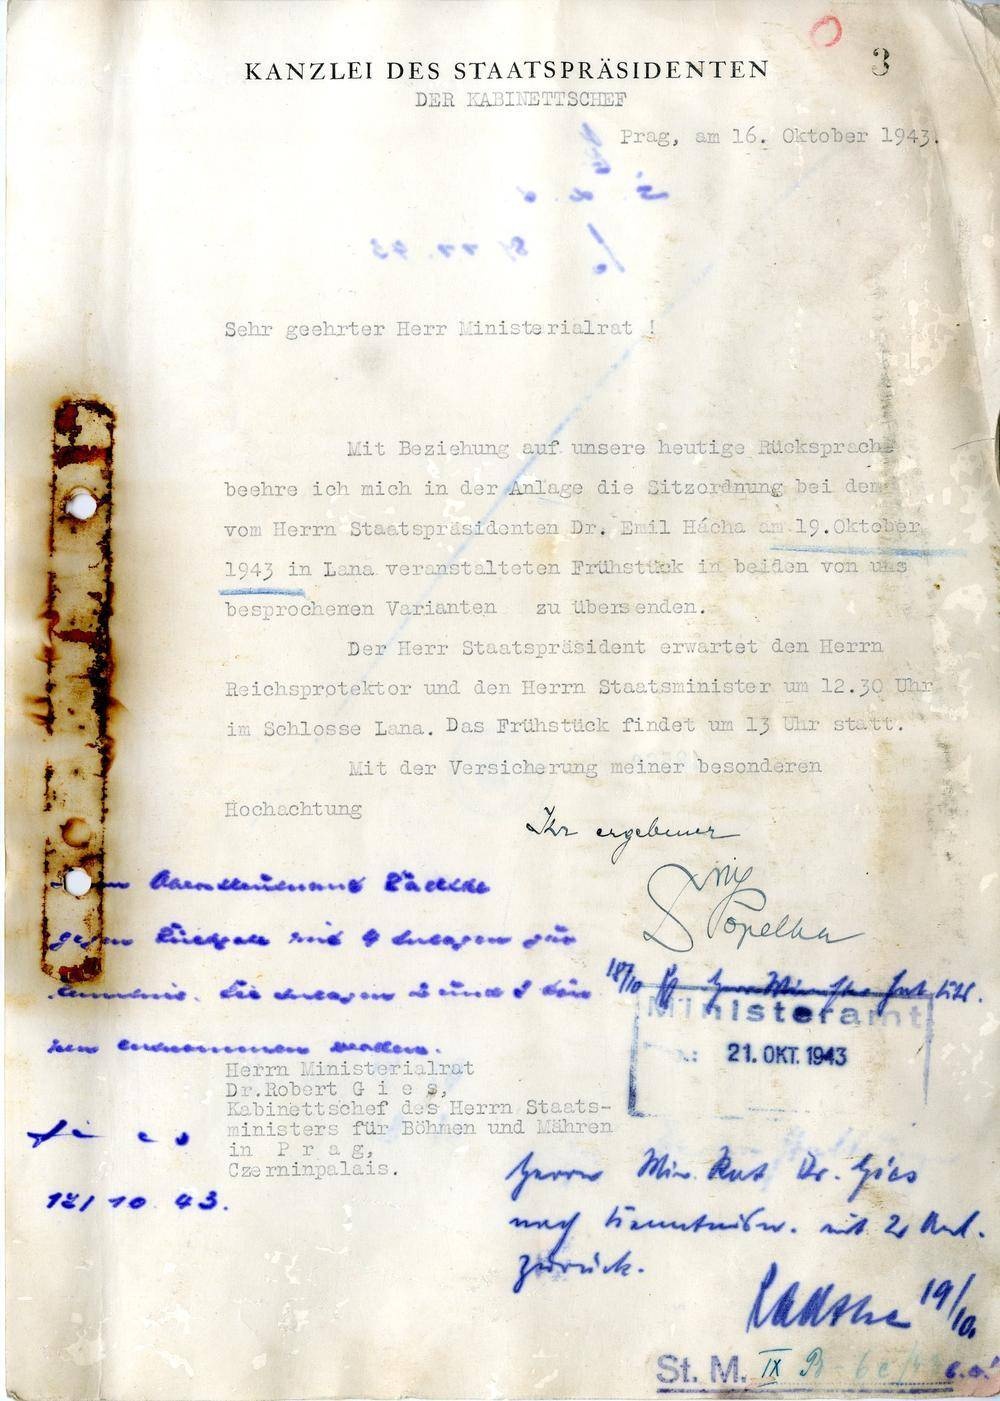 3
KANZLEI DES STAATSPRÄSIDENTEN
DER KABINETTSCHEF
Prag, am 16. Oktober 1943.
Sehr geehrter Herr Ministerialrat !
Mit Beziehung auf unsere heutige Rücksprache
beehre ich mich in der Anlage die Sitzordnung bei dem
vom Herrn Staatspräsidenten Dr. Emil Hácha am 19.Oktober
1943 in Lana veranstalteten Frühstück in beiden von uns
besprochenen Varianten zu übersenden.
Der Herr Staatspräsident erwartet den Herrn
Reichsprotektor und den Herrn Staatsminister um 12.30 Uhr
im Schlosse Lana. Das Frühstück findet um 13 Uhr statt.
Mit der Versicherung meiner besonderen
Hochachtung
Ihr ergebener
Popelka
gegen Rückgabe mit 4 Anlagen zur
Kenntnis. Die Anlagen 2 und 3
entnommen werden.
Gies
18/10
Ministeramt
21. OKT. 1943
Herrn Ministerialrat
Dr.Robert G i e s,
Kabinettschef des Herrn Staats-
ministers für Böhmen und Mähren
in P r a g,
Czerninpalais.
10 43.
Herrn Min. Rat Dr. Gies
nach Kenntnisn. mit 2 Anl.
zurück.
19/10.
St. M. IX